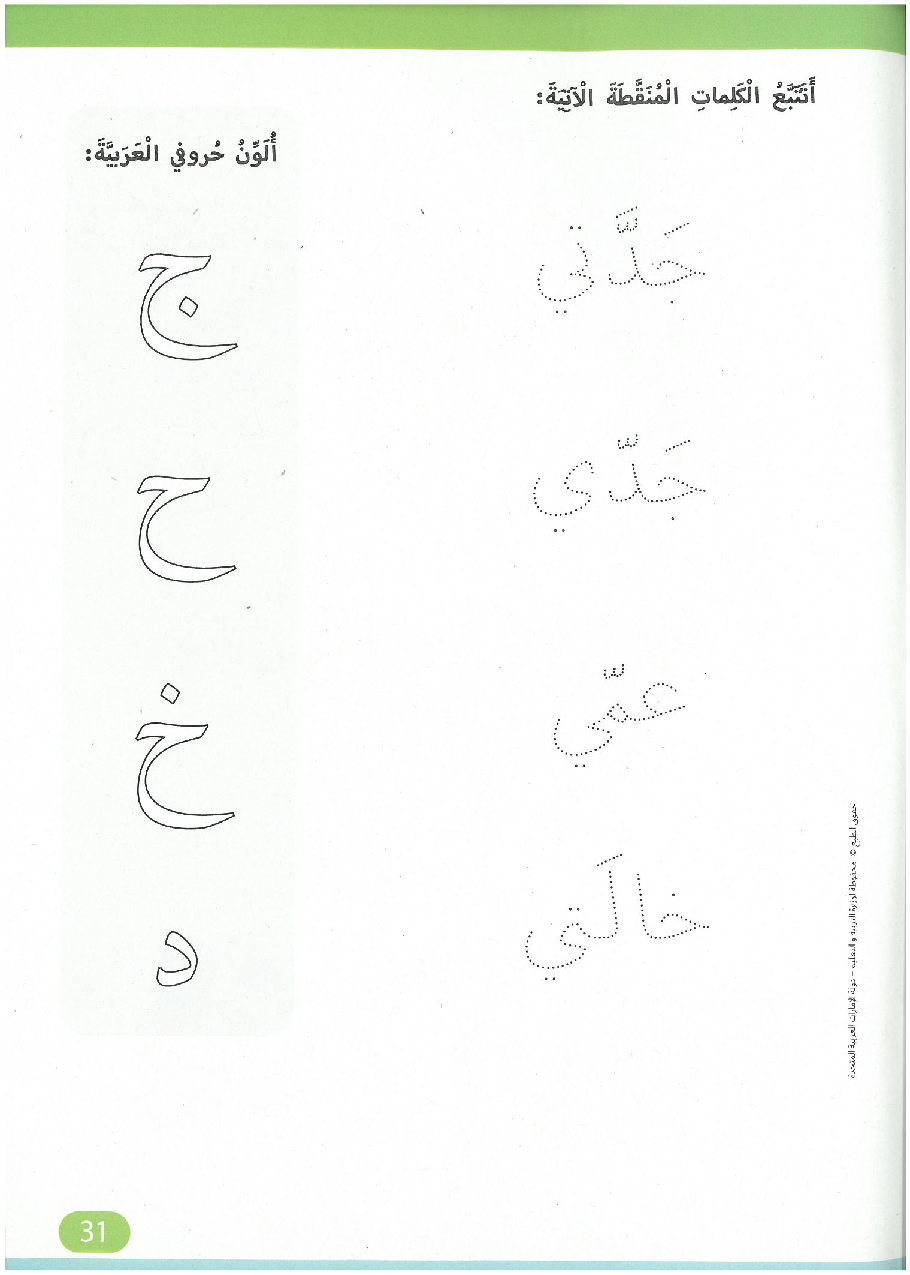 أَتَتَبَّعُ الْكَلِماتِ الْمُنَقَّطَةَ الْآتِيَةَ:
جَدَّتي
جَدّي
عمّي
خالَتي
أُلَوِّنُ حُروفي الْعَرَبِيَّةَ:
ج
ح
خ
د
حقوق الطبع © محفوظة لوزارة التربية و التعليم – دولة الإمارات العربية المتحدة
31